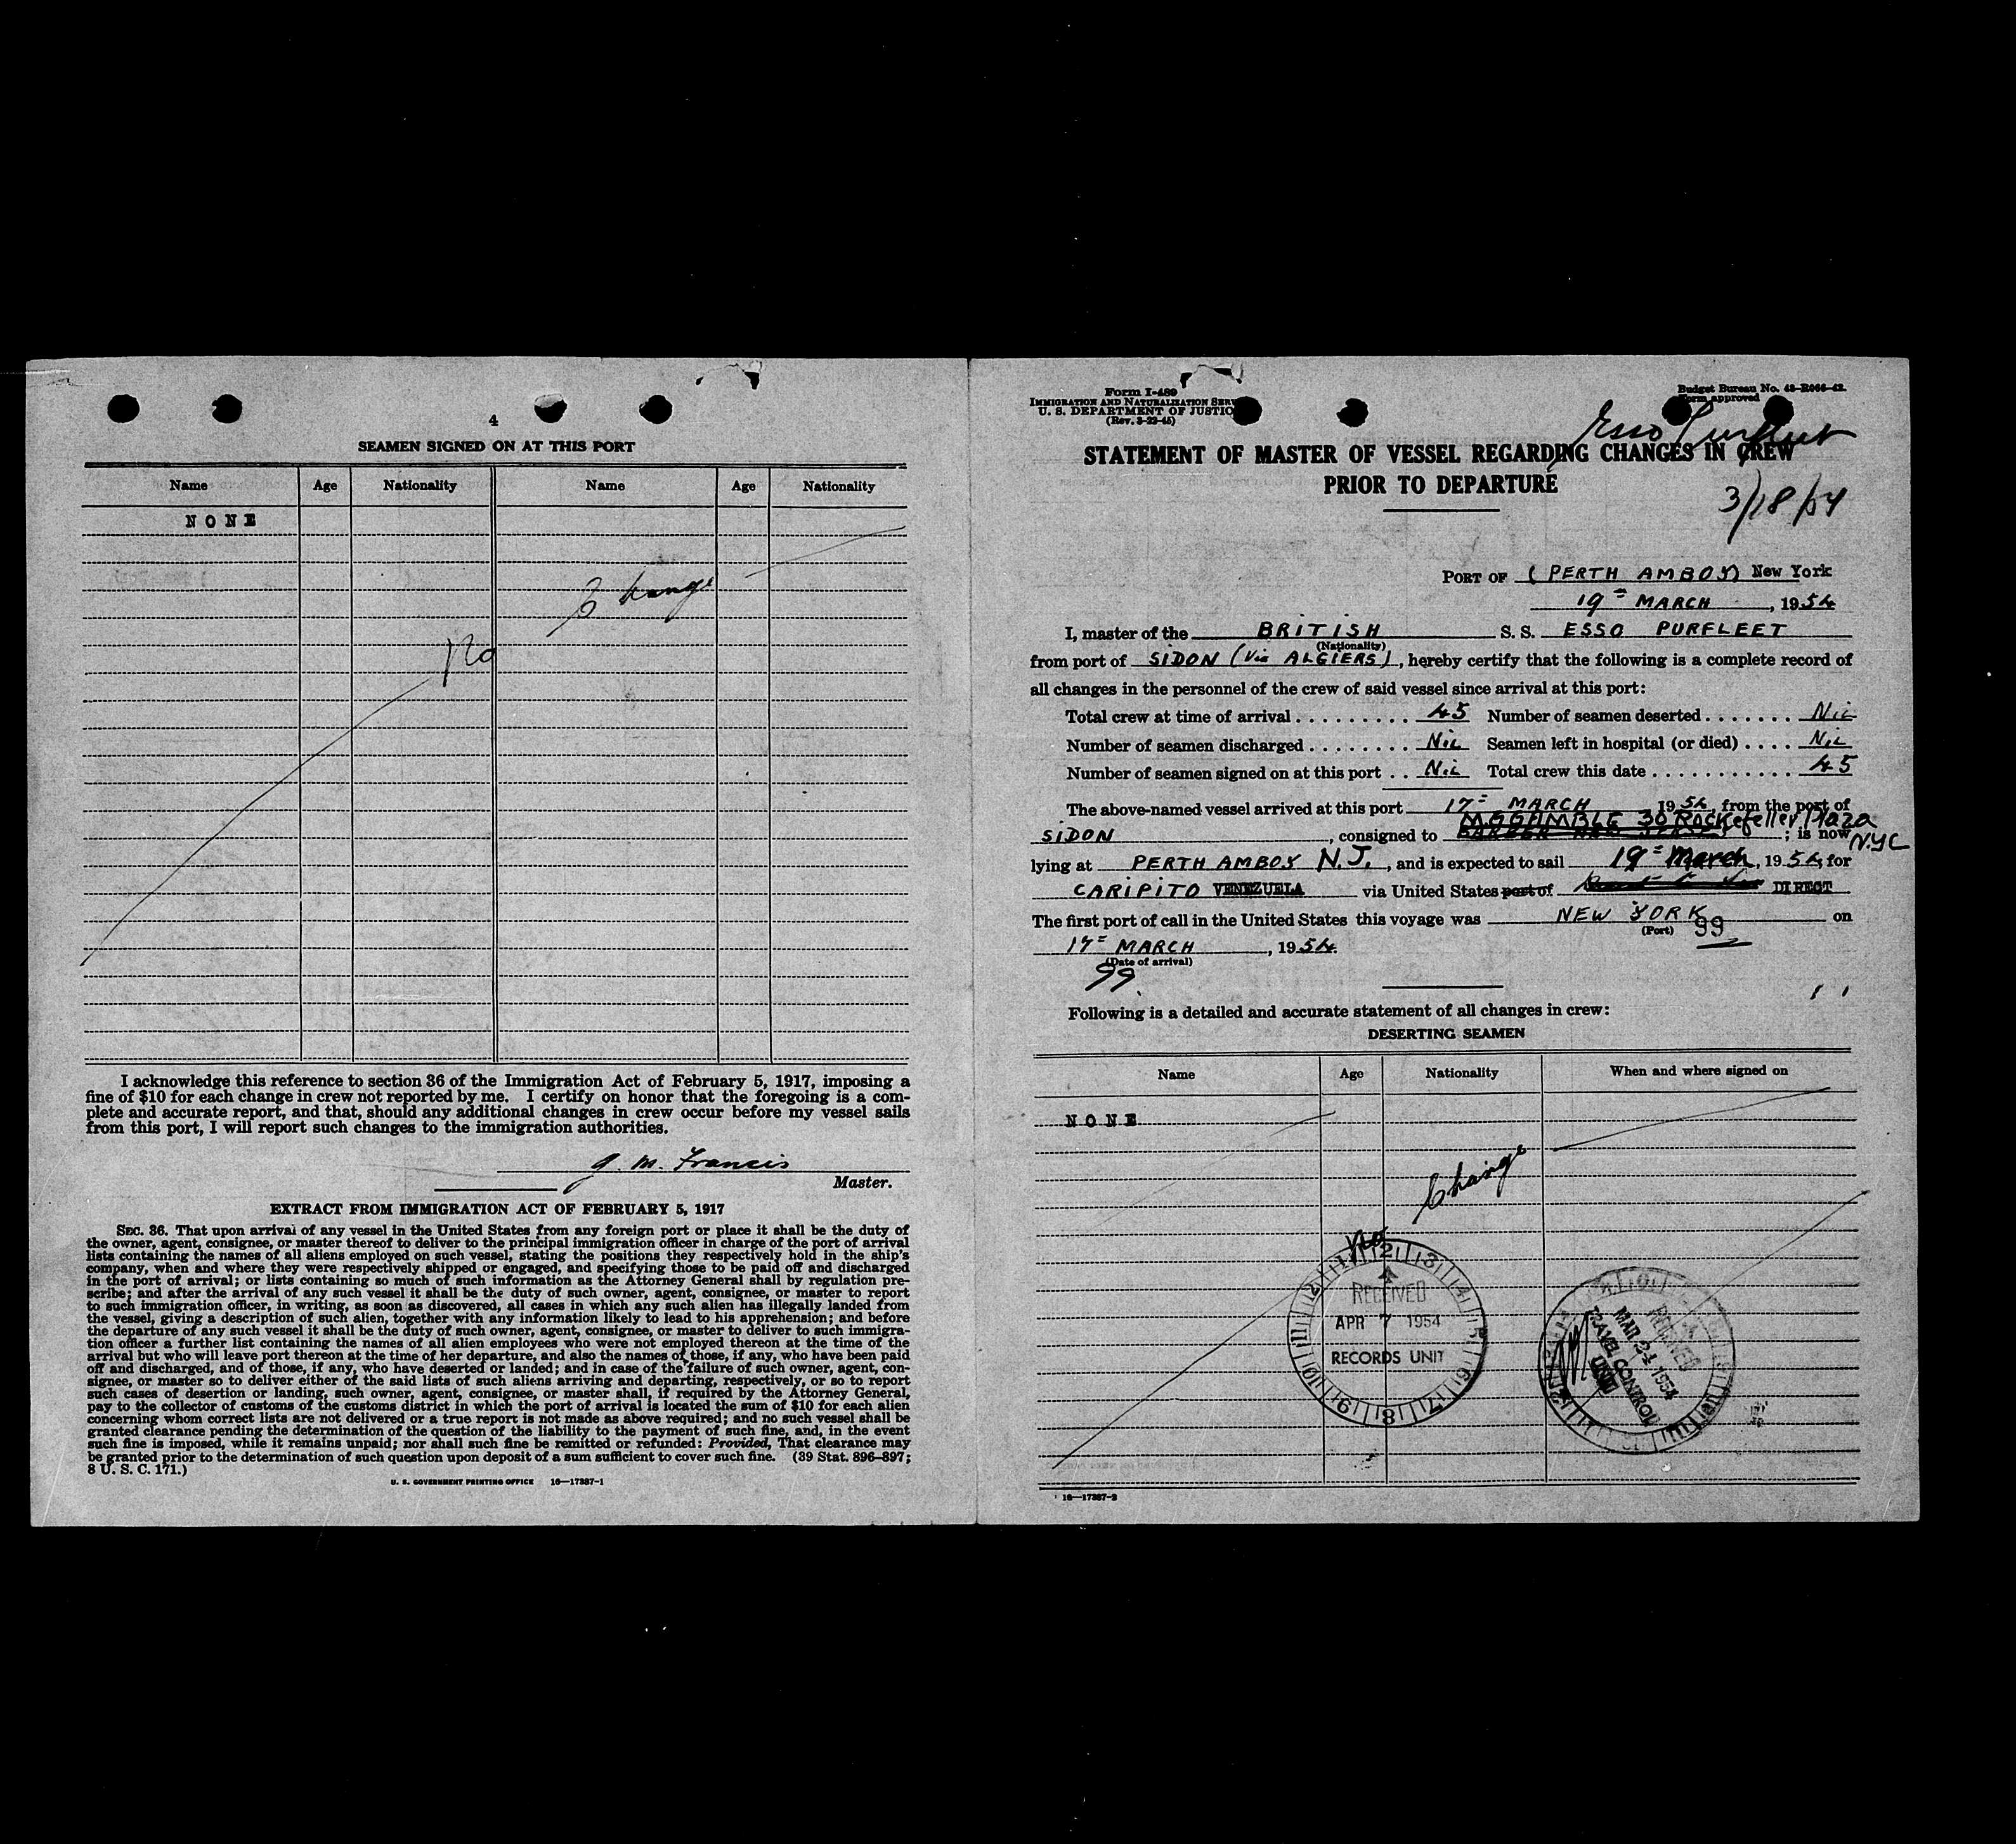 4
SEAMEN SIGNED ON AT THIS PORT
Name Age Nationality Name Age Nationality
NONE
No Change
I acknowledge this reference to section 36 of the Immigration Act of February 5, 1917, imposing a
fine of $10 for each change in crew not reported by me. I certify on honor that the foregoing is a com-
plete and accurate report, and that, should any additional changes in crew occur before my vessel sails
from this port, I will report such changes to the immigration authorities.
J. M. Francis
Master.
EXTRACT FROM IMMIGRATION ACT OF FEBRUARY 5, 1917
SEC. 36. That upon arrival of any vessel in the United States from any foreign port or place it shall be the duty of
the owner, agent, consignee, or master thereof to deliver to the principal immigration officer in charge of the port of arrival
lists containing the names of all aliens employed on such vessel, stating the positions they respectively hold in the ship's
company, when and where they were respectively shipped or engaged, and specifying those to be paid off and discharged
in the port of arrival; or lists containing so much of such information as the Attorney General shall by regulation pre-
scribe; and after the arrival of any such vessel it shall be the duty of such owner, agent, consignee, or master to report
to such immigration officer, in writing, as soon as discovered, all cases in which any such alien has illegally landed from
the vessel, giving a description of such alien, together with any information likely to lead to his apprehension; and before
the departure of any such vessel it shall be the duty of such owner, agent, consignee, or master to deliver to such immigra-
tion officer a further list containing the names of all alien employees who were not employed thereon at the time of the
arrival but who will leave port thereon at the time of her departure, and also the names of those, if any, who have been paid
off and discharged, and of those, if any, who have deserted or landed; and in case of the failure of such owner, agent, con-
signee, or master so to deliver either of the said lists of such aliens arriving and departing, respectively, or so to report
such cases of desertion or landing, such owner, agent, consignee, or master shall, if required by the Attorney General,
pay to the collector of customs of the customs district in which the port of arrival is located the sum of $10 for each alien
concerning whom correct lists are not delivered or a true report is not made as above required; and no such vessel shall be
granted clearance pending the determination of the question of the liability to the payment of such fine, and, in the event
such fine is imposed, while it remains unpaid; nor shall such fine be remitted or refunded: Provided, That clearance may
be granted prior to the determination of such question upon deposit of a sum sufficient to cover such fine. (39 Stat. 896-897;
8 U. S. C. 171.)
U. S. GOVERNMENT PRINTING OFFICE 16—17387-1
Form I-489
IMMIGRATION AND NATURALIZATION SERV
U. S. DEPARTMENT OF JUSTIC
(Rev. 3-23-45)
Budget Bureau No. 43-R066-42.
Form approved
Esso Purfleet
STATEMENT OF MASTER OF VESSEL REGARDING CHANGES IN CREW
PRIOR TO DEPARTURE
3/18/54
PORT OF (PERTH AMBOY) New York
19= MARCH, 1954
I, master of the BRITISH S. S. ESSO PURFLEET
(Nationality)
from port of SIDON (Via ALGIERS), hereby certify that the following is a complete record of
all changes in the personnel of the crew of said vessel since arrival at this port:
Total crew at time of arrival . . . . . . . . . 45 Number of seamen deserted . . . . . . . Nil
Number of seamen discharged . . . . . . . . Nil Seamen left in hospital (or died) . . . . Nil
Number of seamen signed on at this port . . Nil Total crew this date . . . . . . . . . . . . 45
The above-named vessel arrived at this port 17= MARCH 1954, from the port of
M.G. GAMBLE 30 Rockefeller Plaza
SIDON, consigned to ; is now N.Y.C
lying at PERTH AMBOY N.J., and is expected to sail 19= March, 1954, for
CARIPITO VENEZUELA via United States port of DIRECT
The first port of call in the United States this voyage was NEW YORK on
(Port) 99
17= MARCH, 1954.
(Date of arrival)
99
Following is a detailed and accurate statement of all changes in crew:
DESERTING SEAMEN
Name Age Nationality When and where signed on
NONE
No Change
RECEIVED
APR 7 1954
RECORDS UNIT
MAR 24 1954
TRAVEL CONTROL
UNIT
16—17387-2